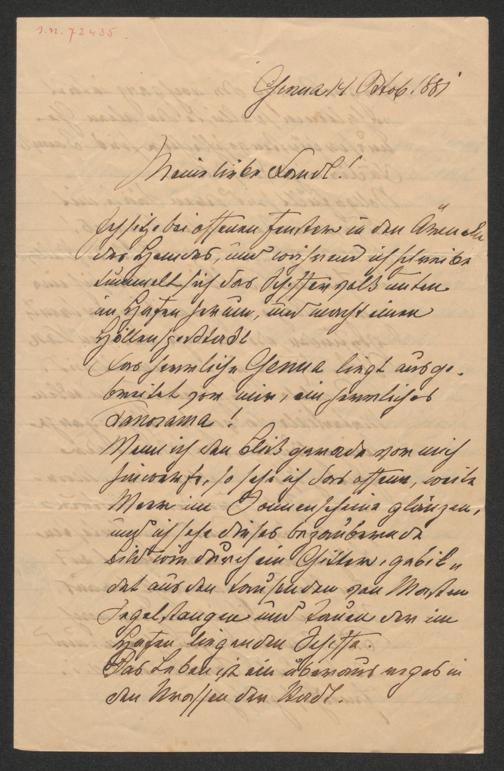 I.N. 72435
Genua 14 Octob. 1881
Mein lieber Freund!
Ich sitze bei offenem Fenster in den Ärmeln
des Hemdes, und während ich schreibe
tummelt sich das Schiffervolk unten
im Hafen herum, und macht einen
Höllenspectakel
Das herrliche Genua liegt ausge-
breitet vor mir, ein herrliches
Panorama!
Wenn ich den Blick gerade vor mich
hinwerfe, so sehe ich das offene, weite
Meer im Sonnenscheine glänzen,
und ich sehe dieses bezaubernde
Bild wie durch ein Gitter, gebil„
det aus den Tausenden von Masten
Segelstangen und Tauen der im
Hafen liegenden Schiffe.
Das Leben ist ein überaus reges in
den Strassen der Stadt.